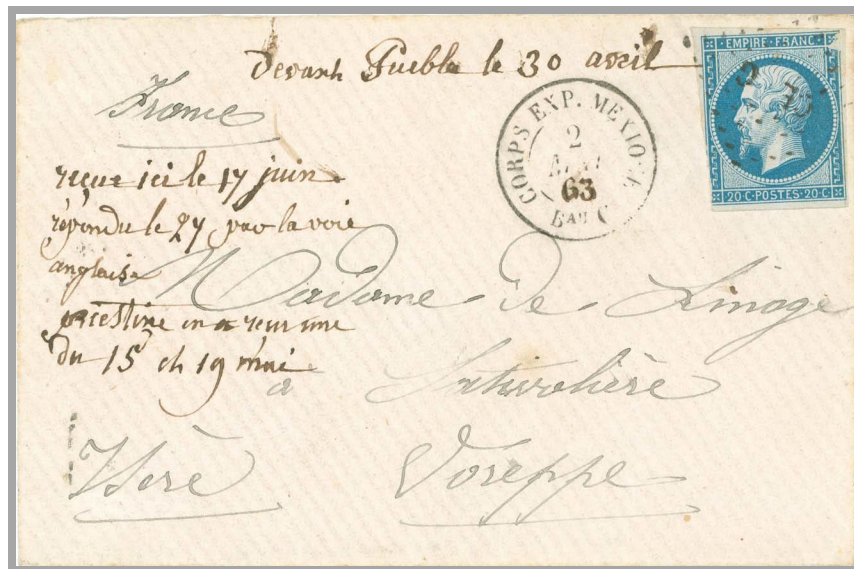 devant Puebla le 30 avril
EMPIRE FRANC
20 C POSTES 20 C
France
CORPS EXP. MEXIQUE
2
MAI
63
Bau C
reçue ici le 17 juin
répondu le 27 par la voie
anglaise
en a reçu une
du 15 et 19 mai
Madame de Linage
à
Voreppe
Isère